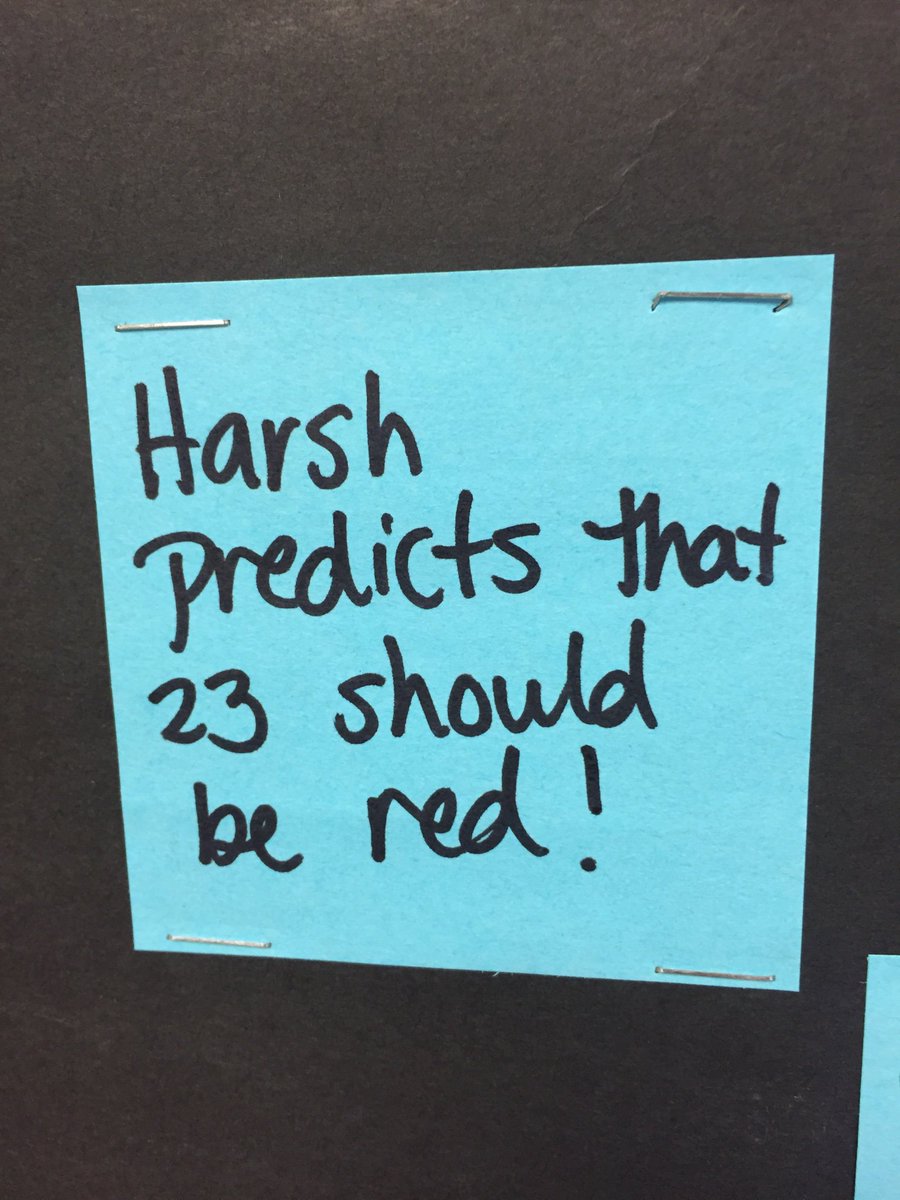 Harsh
predicts that
23 should
be red!